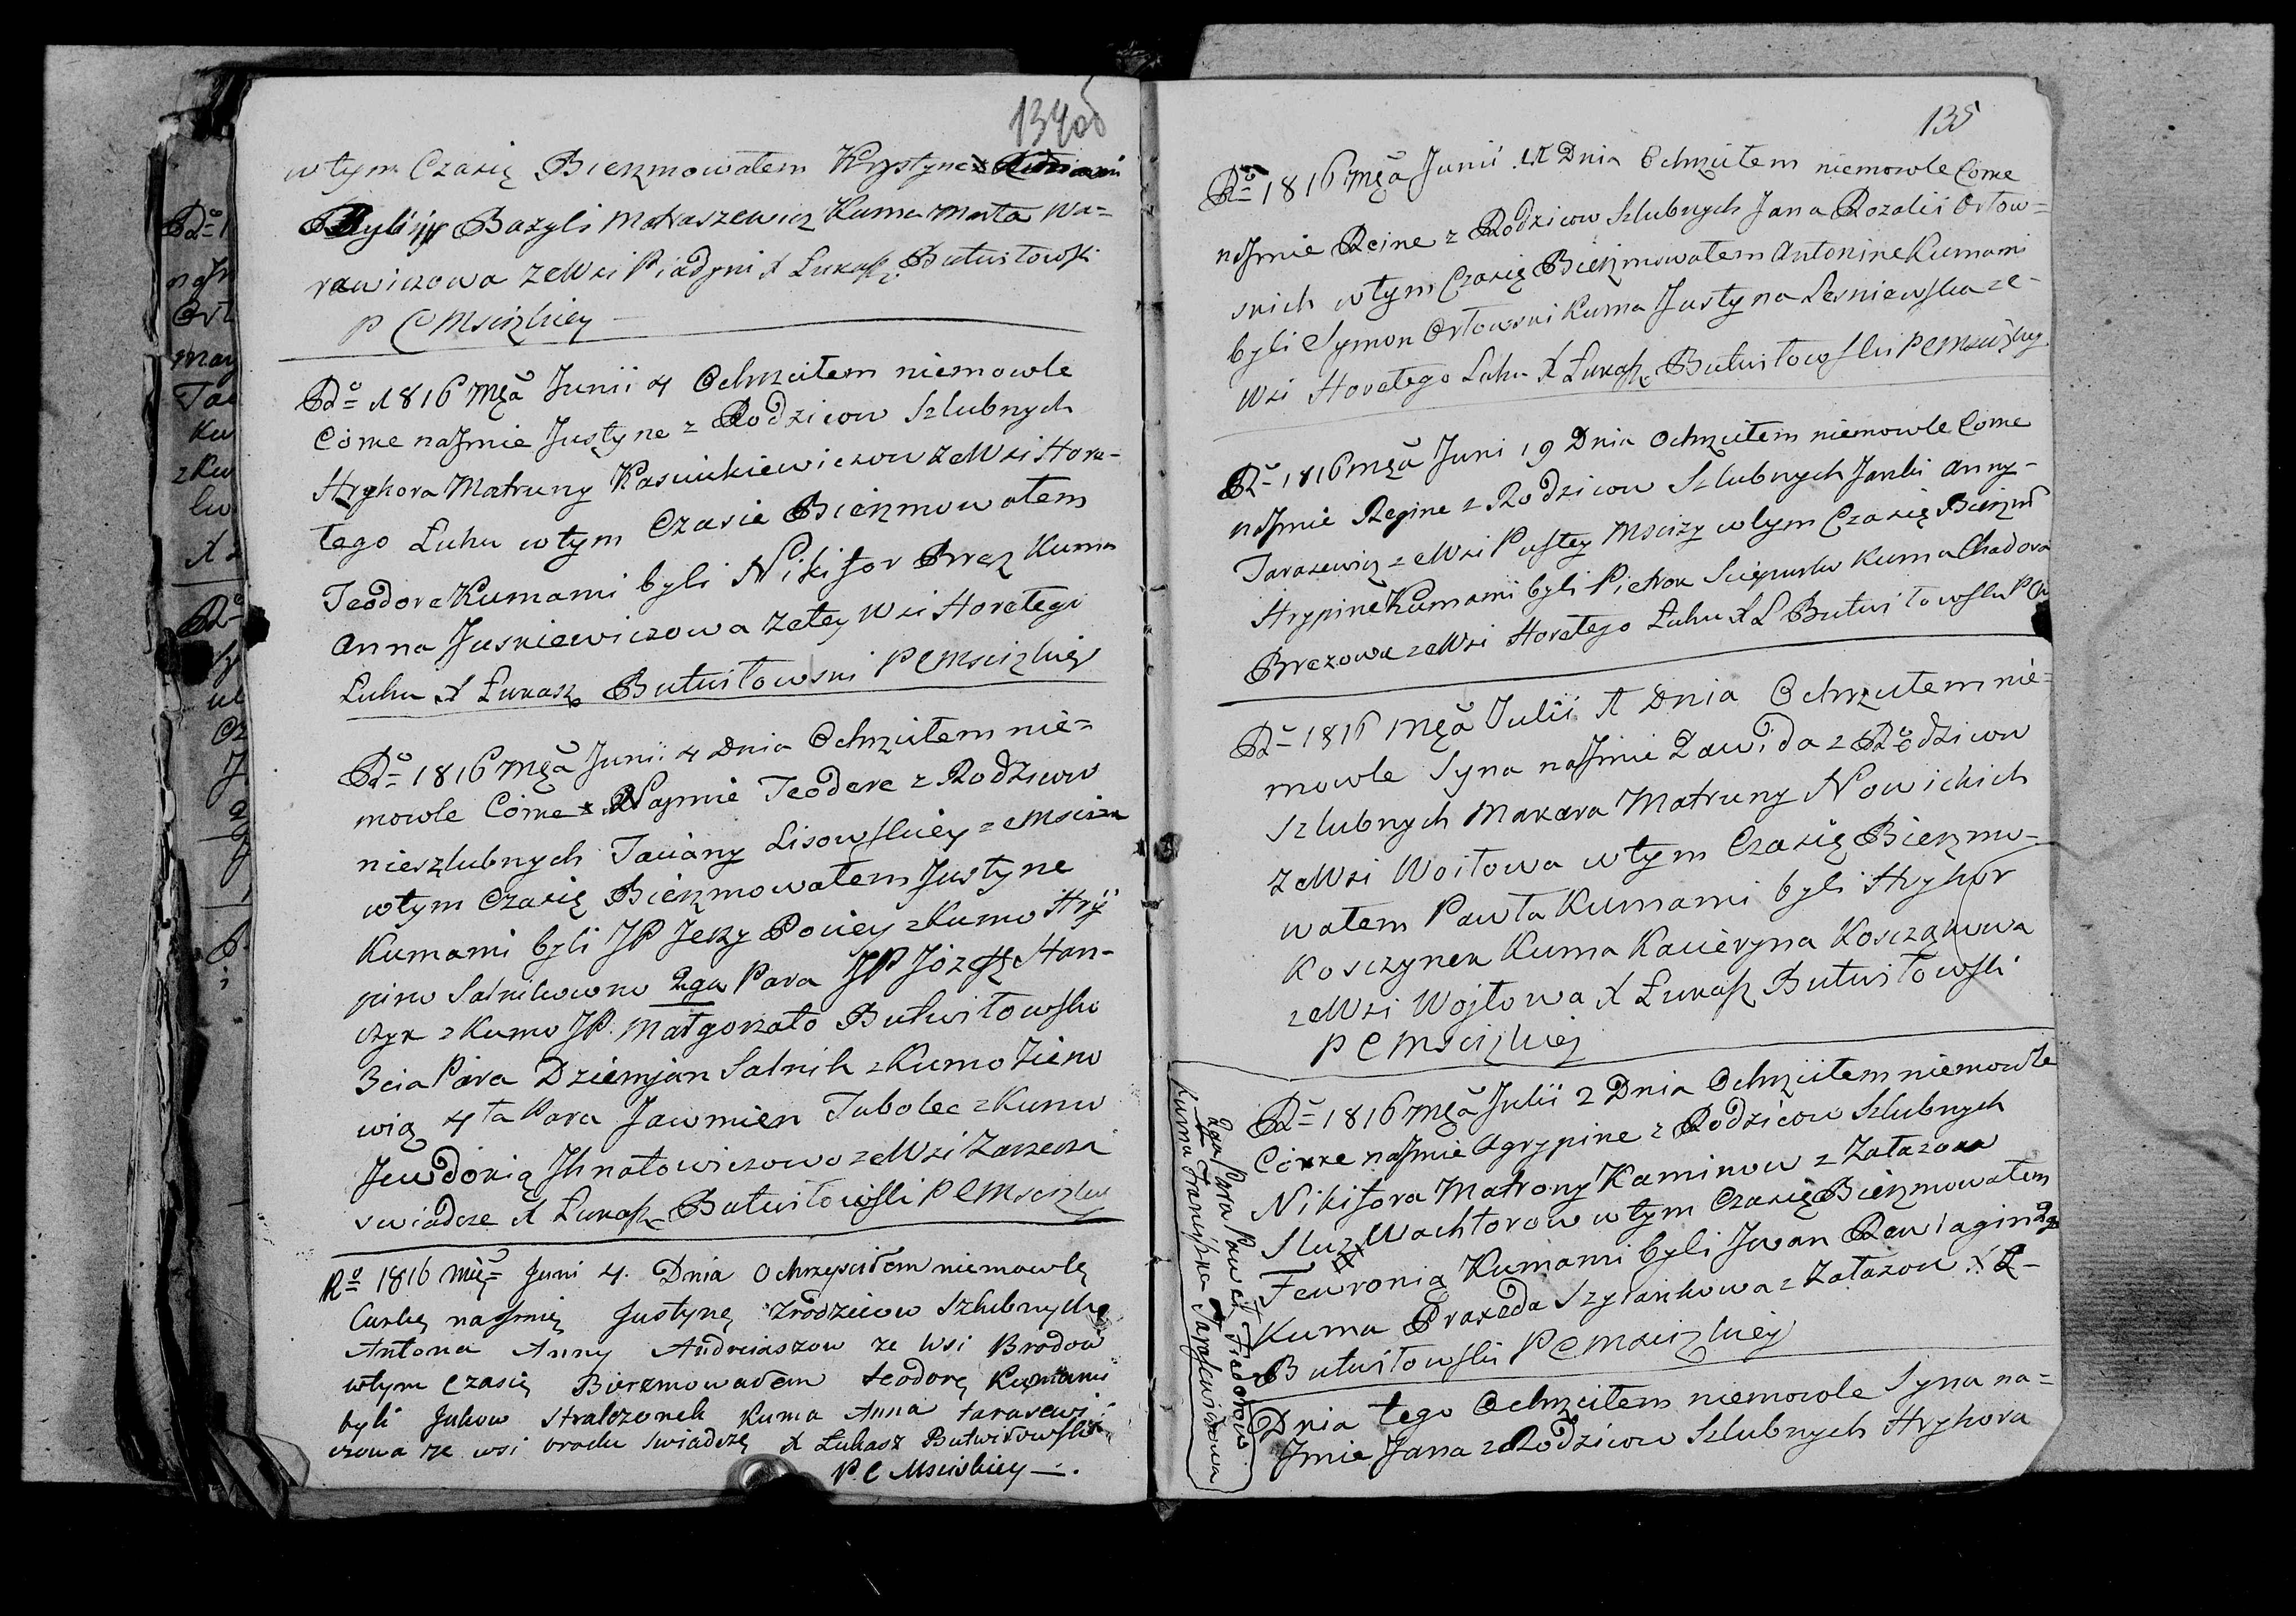 134об
wtym Czasię Bierzmowałem Krystyne Kumami
Byli Bazyli Mataszewicz Kuma Marta Wa=
rawiczowa zeWsi Piadyni X Łukasz Butwiłowski
P C Msciżkiey
Rº 1816 Mcâ Junii 4 Ochrzciłem niemowle
Córke naJmie Justyne z Rodzicow Szlubnych
Hryhora Matruny Kasiukiewiczow zeWsi Hore-
łego Łuhu wtym Czasie Bierzmowałem
Teodore Kumami byli Nikifor Brez Kuma
Anna Juskiewiczowa zetey Wsi Horełego
Łuhu X Łukasz Butwiłowski P C Msciżkiey
Rº 1816 Mcâ Junii 4 Dnia Ochrzciłem nie=
mowle Córke Najmie Teodore z Rodzicow
nieszlubnych Taciany Lisowskiey z Msciża
wtym Czasię Bierzmowałem Justyne
Kumami byli JP Jerzy Pociey zKumo Hry
pino Salnikowno 2ga Para JP Józef Han-
czyk zKumo JP. Małgorzato Butwiłowsko
3cia Para Dziemjan Salnik zKumo Zieno
wią 4ta Para Jawmien Tubolec zKumo
Jewdokią Jhnatowiczowo zeWsi Zarzecza
swiadcze X Łukasz Butwiłowski P C Msciżkiey
Rº 1816 Mię= Juni 4. Dnia Ochrzyściłem niemowlę
Curkę naJmię Justynę zrodzicow Szlubnych
Antona Anny Andreiaszow ze Wsi Brodow
wtym Czasię Bierzmowałem teodorę Kumami
byli Jukow Stralczonek Kuma Anna tarasewi=
czowa ze wsi brodu Swiadczę X Łukasz Butwiłowski
P. C Msciskiey —.
135
Rº 1816 Mcâ Junii 11 Dnia Ochrzciłem niemowle Corke
naJmie Reine z Rodzicow Szlubnych Jana Rozalii Orłow=
skich wtym Czasię Bierzmowałem Antonine Kumami
byli Symon Orłowski Kuma Justyna Lesniewska ze-
Wsi Horełego Łuhu X Łukasz Butwiłowski P C Msciżkiey
Rº 1816 Mcâ Juni 19 Dnia Ochrzciłem niemowle Corke
naJmie Regine z Rodzicow Szlubnych Janki Anny-
Tarasewicz zeWsi Pustey Msciży wtym Czasię Bierzm
Hrypine Kumami byli Pietrok Kuma Chadora
Brezowa zeWsi Horełego Łuhu X Ł Butwiłowski P C
Rº 1816 Mcâ Julii 1 Dnia Ochrzciłem nie=
mowle Syna naJmie Dawida z Rodzicow
Szlubnych Makara Matruny Nowickich
zeWsi Woitowa wtym Czasię Bierzmo-
wałem Pawła Kumami byli Hryhor
Koszczynek Kuma Kacieryna
zeWsi Wojtowa X Łukasz Butwiłowski
P C Msciżkiey
Rº 1816 Mcâ Julii 2 Dnia Ochrzciłem niemowle
Córke naJmie Agrypine z Rodzicow Szlubnych
Nikifora Matrony Kaminow z Załazow
Służ Wachtorow wtym Czasię Bierzmowałem
Fewronią Kumami byli Jwan Rawiagin
Kuma Praxeda Szylankowa z Załazow X Ł-
Butwiłowski P C Msciżkiey
2ga Para Paweł Fiedorow
Kuma Franciszka Tarasewiczowa
Dnia tego Ochrzciłem niemowle Syna na=
Jmie Jana z Rodzicow Szlubnych Hryhora